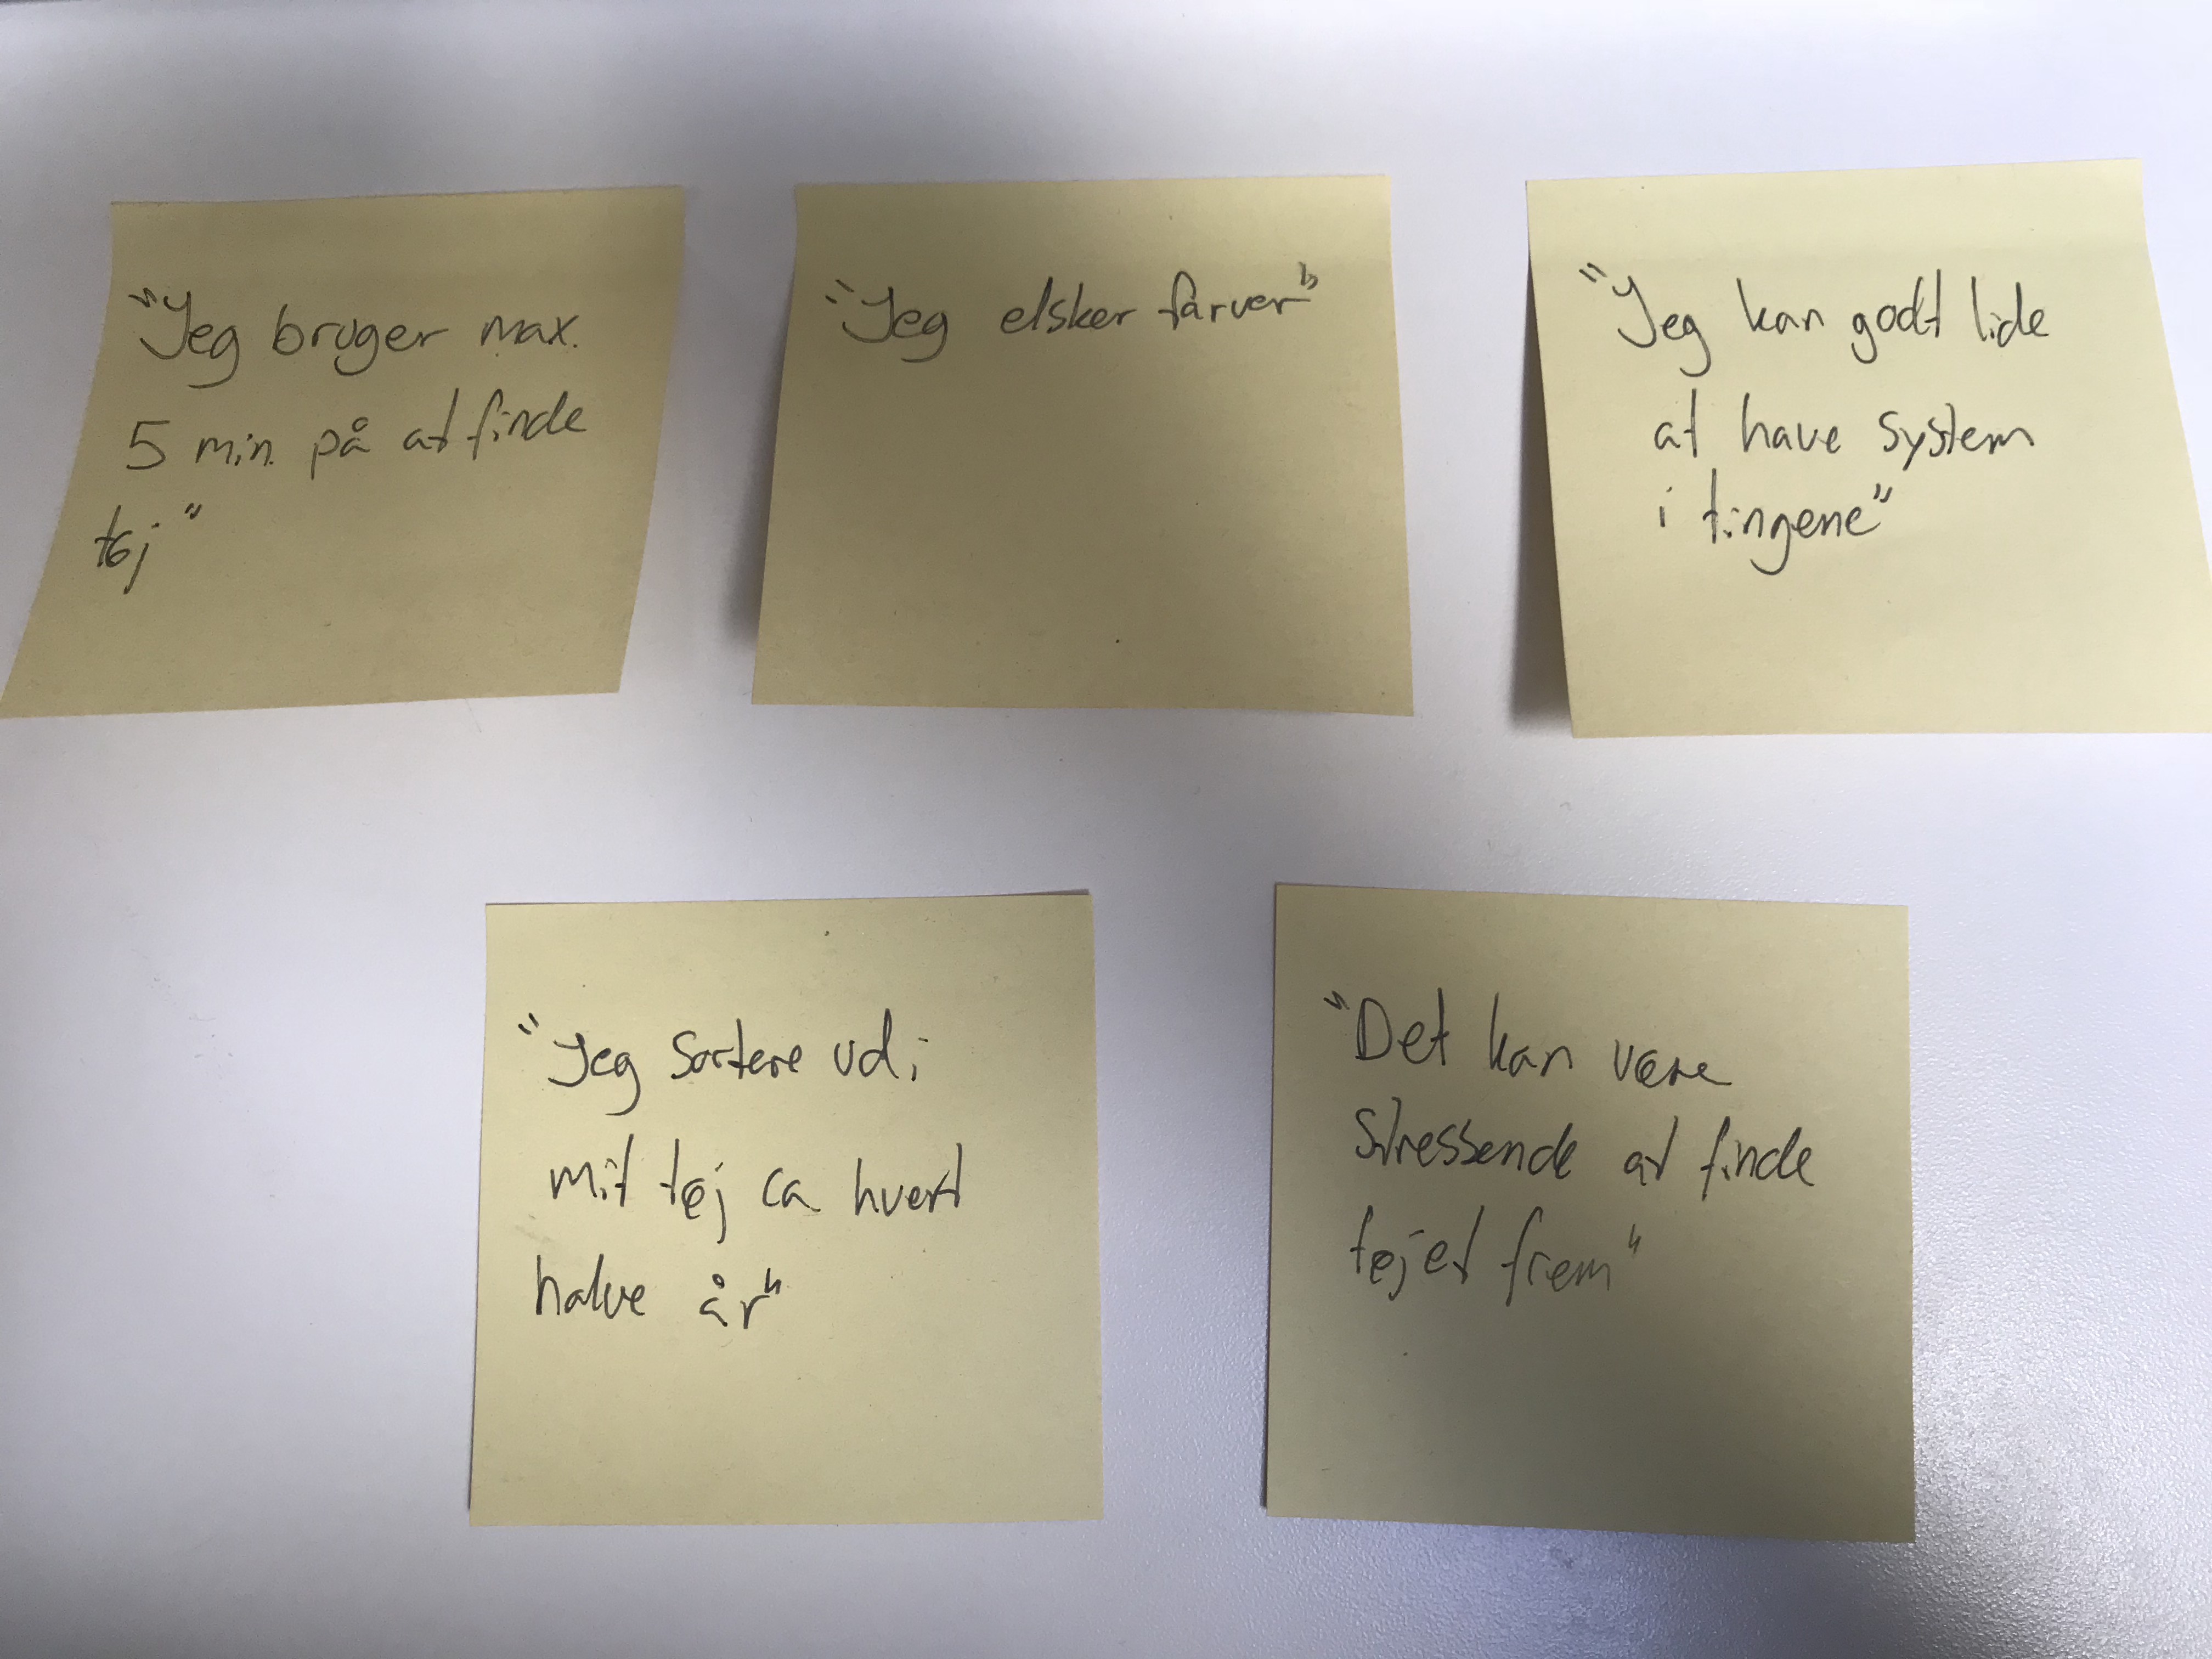 "Jeg bruger max.
5 min. på at finde
tøj"
"Jeg elsker farver"
"Jeg kan godt lide
at have system
i tingene"
"Jeg sortere ud i
mit tøj ca hvert
halve år"
"Det kan være
stressende at finde
tøjet frem"